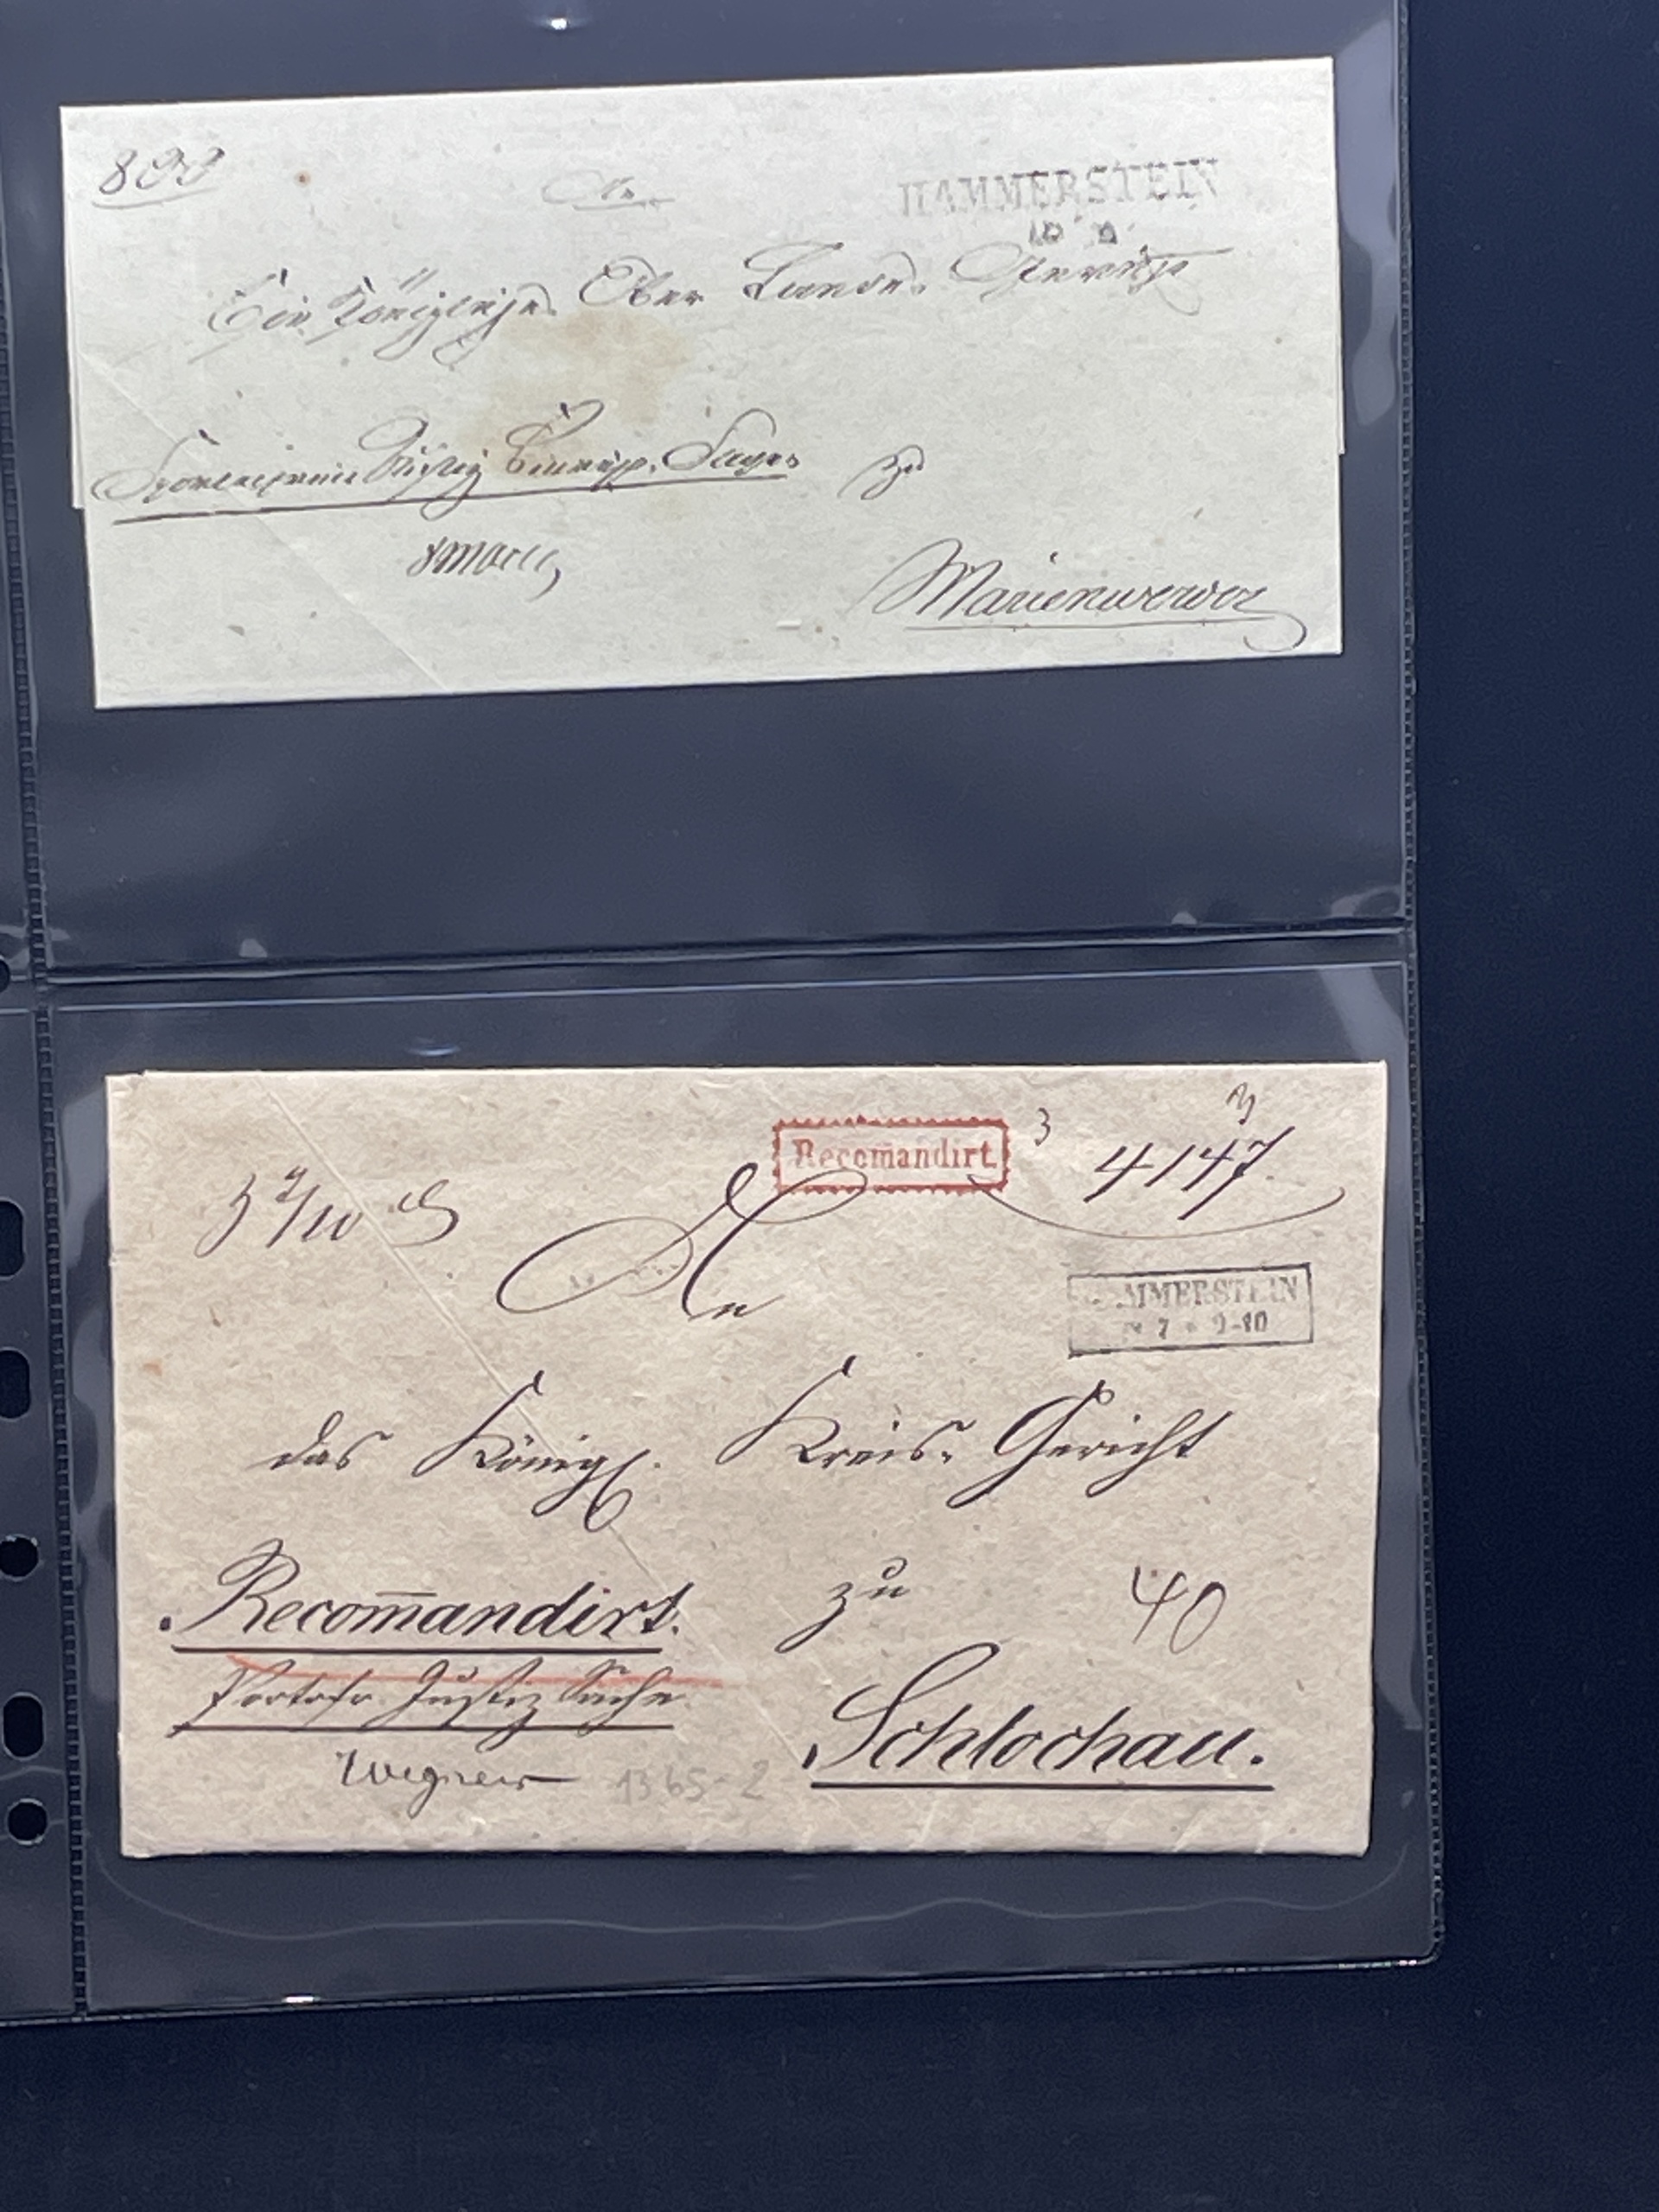 800
An
HAMMERSTEIN
Ein Königliches Ober Landes Gericht
Justiz Sache
zu
Marienwerder
Recomandirt
3
4147
An
HAMMERSTEIN
7 * 9-10
das Königl. Kreis-Gericht
Recom̄andirt.
zu
40
Portofr. Justiz Sache
Schlochau.
Wegner
1365-2